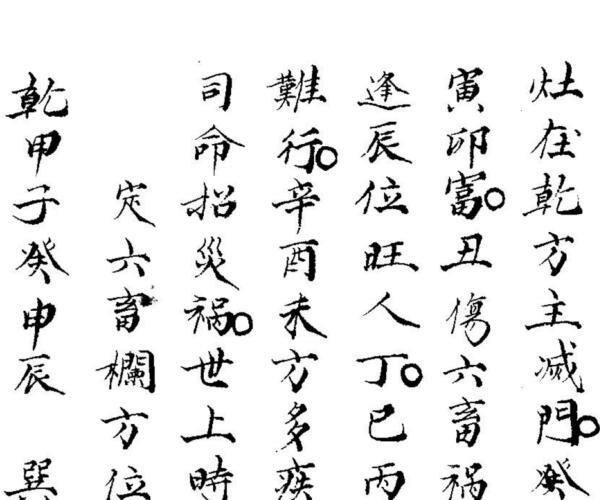 灶在乾方主滅門。癸
寅卯富。丑傷六畜禍
逢辰位旺人丁。巳丙
難行。辛酉未方多疾
司命招災禍。世上時
定六畜欄方位
乾甲子癸申辰 巽